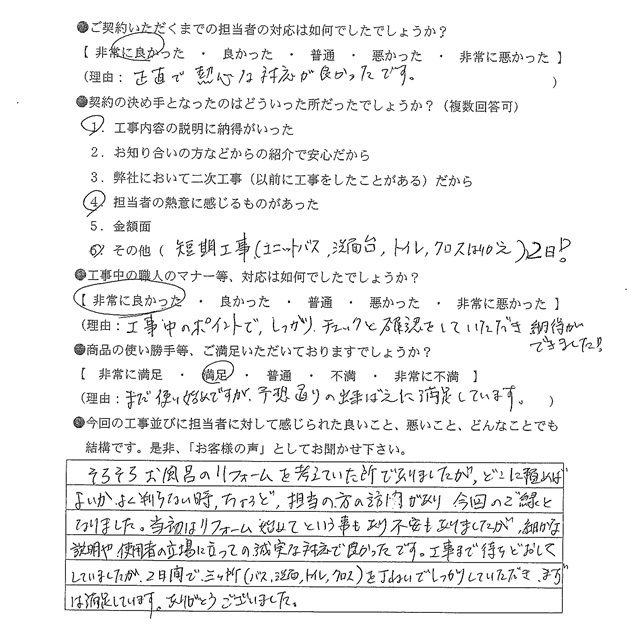 ●ご契約いただくまでの担当者の対応は如何でしたでしょうか？
【 非常に良かった ・ 良かった ・ 普通 ・ 悪かった ・ 非常に悪かった 】
（理由： 正直で熱心な対応が良かったです。 ）
●契約の決め手となったのはどういった所だったでしょうか？（複数回答可）
１．工事内容の説明に納得がいった
２．お知り合いの方などからの紹介で安心だから
３．弊社において二次工事（以前に工事をしたことがある）だから
４．担当者の熱意に感じるものがあった
５．金額面
６．その他（ 短期工事（ユニットバス，洗面台，トイレ，クロスはりかえ）２日！
●工事中の職人のマナー等、対応は如何でしたでしょうか？
【 非常に良かった ・ 良かった ・ 普通 ・ 悪かった ・ 非常に悪かった 】
（理由： 工事中のポイントで，しっかり，チェックと確認をしていただき 納得が
できました！
●商品の使い勝手等、ご満足いただいておりますでしょうか？
【 非常に満足 ・ 満足 ・ 普通 ・ 不満 ・ 非常に不満 】
（理由： まだ使い始めですが，予想通りの出来ばえに満足しています。 ）
●今回の工事並びに担当者に対して感じられた良いこと、悪いこと、どんなことでも
結構です。是非、「お客様の声」としてお聞かせ下さい。
そろそろお風呂のリフォームを考えていた所でありましたが，どこに頼めば
よいかよく判らない時，ちょうど，担当の方の訪問があり 今回のご縁と
なりました。当初はリフォーム始めてという事もあり不安もありましたが，細かな
説明や使用者の立場に立っての誠実な対応で良かったです。工事まで待ちどおしく
していましたが，２日間で，三ヶ所（バス，洗面，トイレ，クロス）を丁ねいでしっかりしていただき，まずは
満足しています。ありがとうございました。